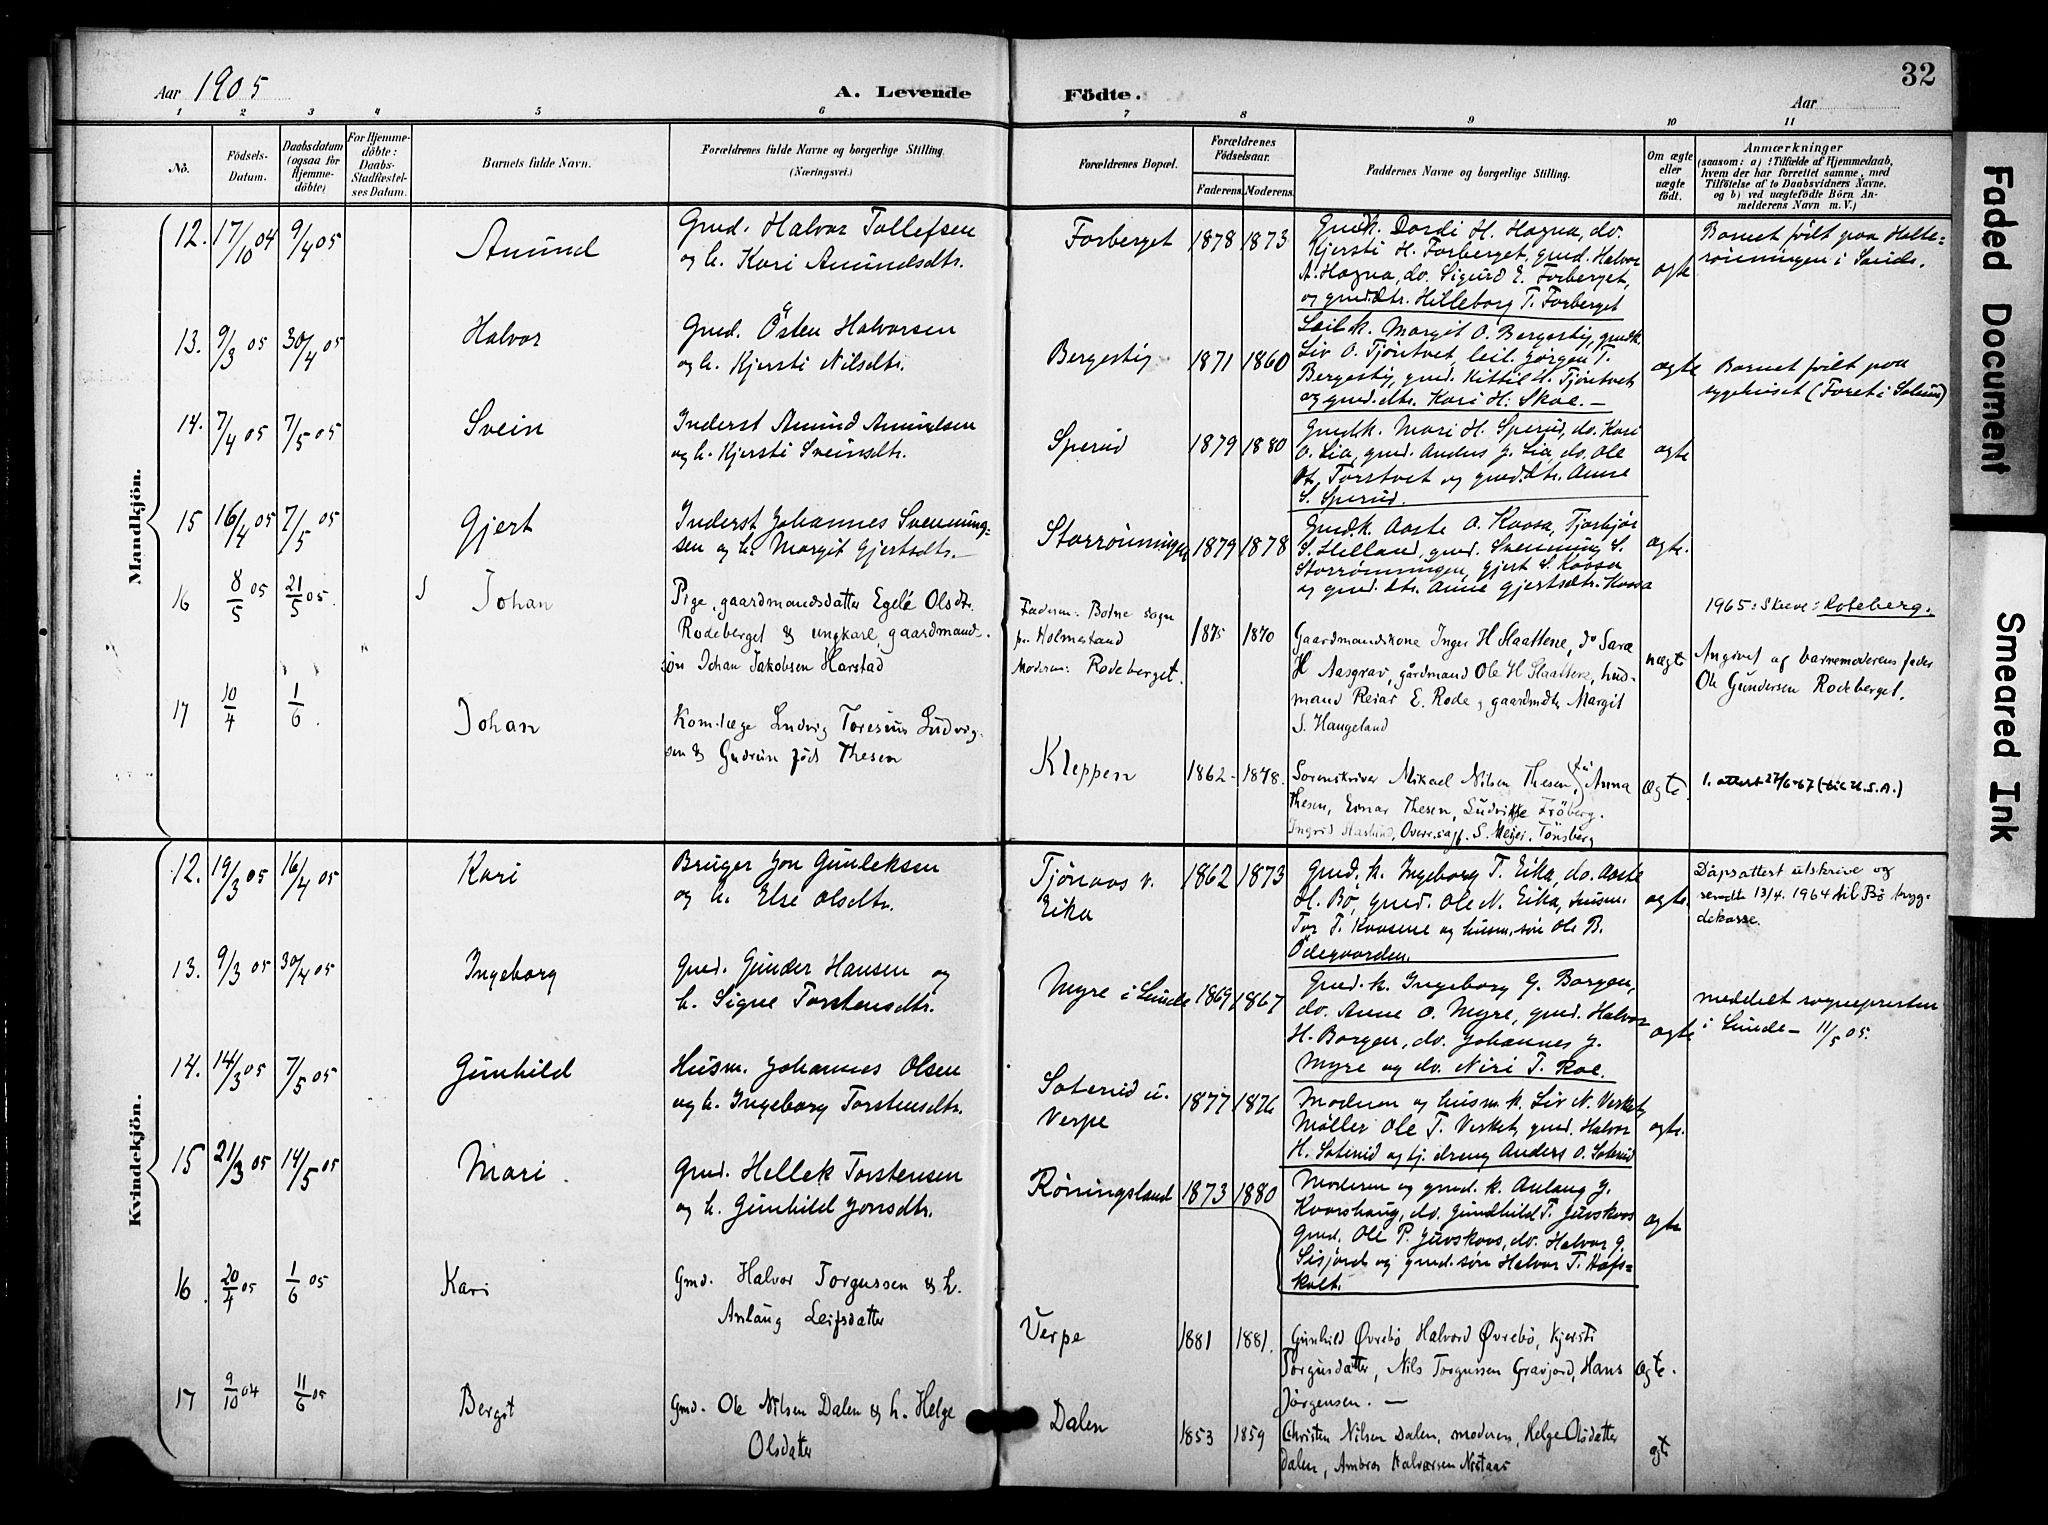 Aar 1905
A. Levende Födte.
Aar
32
1 2 3 4 5 6 7 8 9 10 11
No.
Födsels-
Datum.
Daabsdatum
(ogsaa for
Hjemme-
döbte)
For Hjemme-
döbte:
Daabs-
Stadfæstel-
ses Datum.
Barnets fulde Navn.
Forældrenes fulde Navne og borgerlige Stilling.
(Næringsvei.)
Forældrenes Bopæl.
Forældrenes
Födselsaar.
Faderens. Moderens.
Faddernes Navne og borgerlige Stilling.
Om ægte
eller
uægte
födt.
Anmærkninger
(saasom: a) i Tilfælde af Hjemmedaab,
hvem der har forrettet samme, med
Tilföielse af to Daabsvidners Navne,
og b) ved uægtefödte Börn An-
melderens Navn m. V.)
Mandkjön.
12. 17/10 04 9/4 05 Amund
Gmd. Halvor Tollefsen
og h. Kari Amundsdtr.
Forberget 1878 1873
Gmdk. Dordi H. Hagna, do.
Kjersti H. Forberget, gmd. Halvor
A. Hagna, do. Sigurd E. Forberget,
og gmd.dtr. Hilleborg T. Forberget
ægte
Barnet født paa Holte-
rønningen i Saude.
13. 9/3 05 30/4 05 Halvor
Gmd. Östen Halvorsen
og h. Kjersti Nilsdtr.
Bergestig 1871 1860
Leilk. Margit O. Bergestig, gmdk.
Liv O. Tjöntvet, leil. Jörgen T.
Bergestig, gmd. Kittil H. Tjöntvet
og gmd.dtr. Kari H. Skoe. —
ægte
Barnet født paa
sygehuset
14. 7/4 05 7/5 05 Svein
Inderst Amund Amundsen
og h. Kjersti Sveinsdtr.
Sperud 1879 1880
Gmdk. Mari H. Sperud, do. Kari
O. Lia, gmd. Anders J. Lia, do. Ole
Torstvet og gmd.dtr. Anne
S. Sperud.
ægte
15 16/4 05 7/5 05 Gjert
Inderst Johannes Svenning-
sen og h. Margit Gjertsdtr.
Storrønningen 1879 1878
Gmdk. Aaste O. Kaasa, Torbjør
S. Helland, gmd. Svenning S.
Storrønningen, Gjert S. Kaasa
og gmd.dtr. Anne Gjertsdtr. Kaasa
ægte.
16 8/5 05 21/5 05. Johan
Pige, gaardmandsdatter Egelé Olsdtr.
Rodeberget & ungkarl, gaardmand-
søn Johan Jakobsen Harstad
Faderen: Botne sogn
pr. Holmestrand
Moderen: Rodeberget.
1875 1870
Gaardmandskone Inger H Slaattene, do Sara
H Aasgrav, gårdmand Ole H Slaattene, hus-
mand Reiar E. Rode, gaardmdtr. Margit
S. Haugeland
uægte
1965: Skrive: Roteberg.
Angivet af barnemoderens fader
Ole Gundersen Rodeberget.
17 10/4 1/6. Johan
Kom.læge Ludvig Toresius Ludvig-
sen & Gudrun født Thesen
Kleppen 1862- 1878.
Sorenskriver Mikael Nilsen Thesen, fru Anna
Thesen, Einar Thesen, Ludvikke Fröberg.
Ingrid Haslund, S. Meyer. Tönsberg
ægte.
1. attest 27/6-67 (til U.S.A.)
Kvindekjön.
12. 19/3 05 16/4 05 Kari
Bruger Jon Gunleksen
og h. Else Olsdtr.
Tjönaas v.
Eika
1862 1873
Gmd. k. Ingeborg T. Eika, do. Aaste
H. Bö, gmd. Ole N. Eika, husm.
Tor T. Kaasene og husm. søn Ole B.
Ödegaarden.
ægte.
Dåpsattest utskrive og
sendt 13/4. 1964 til Bø tryg-
dekasse.
13. 9/3 05 30/4 05 Ingeborg
Gmd. Gunder Hansen og
h. Signe Torstensdtr.
Myre i Lunde 1869 1867
Gmd. k. Ingeborg G. Borgen,
do. Anne O. Myre, gmd. Halvor
H. Borgen, do. Johannes J.
Myre og do. Niri T. Roe.
ægte
meddelt sognepresten
i Lunde – 11/5 05.
14. 14/3 05 7/5 05 Gunhild
Husm. Johannes Olsen
og h. Ingeborg Torstensdtr.
Saterud u.
Verpe
1877 1876
Moderen og husm. k. Liv N. Verket,
Møller Ole T. Verket, gmd. Halvor
H. Saterud og tj. dreng Anders O. Saterud
ægte.
15 21/3 05 14/5 05 Mari.
Gmd. Hellek Torstensen
og h. Gunhild Jonsdtr.
Röningsland 1873 1880
Moderen og gmd. k. Anlaug J.
Kvarshaug, do. Gundhild T. Juvskaas
Gmd. Ole P. Juvskaas, do. Halvor G.
Sisjord og gmd. søn Halvor T. Kåfs-
kolt.
ægte
16. 20/4 05 1/6 05 Kari
Gmd. Halvor Torgussen & h.
Anlaug Leifsdatter
Verpe 1881 1881.
Gunhild Øvrebö Halvord Øvrebö, Kjersti
Torgusdatter, Nils Torgussen Gravjord, Hans
Jörgensen. —
ægte.
17 9/10 04 11/6 05 Bergit
Gmd. Ole Nilsen Dalen & h. Helge
Olsdatter
Dalen 1853 1859
Christen Nilsen Dalen, moderen, Helge Olsdatter
dalen, Ambros Halvorsen
ægte
Faded Document
Smeared Ink